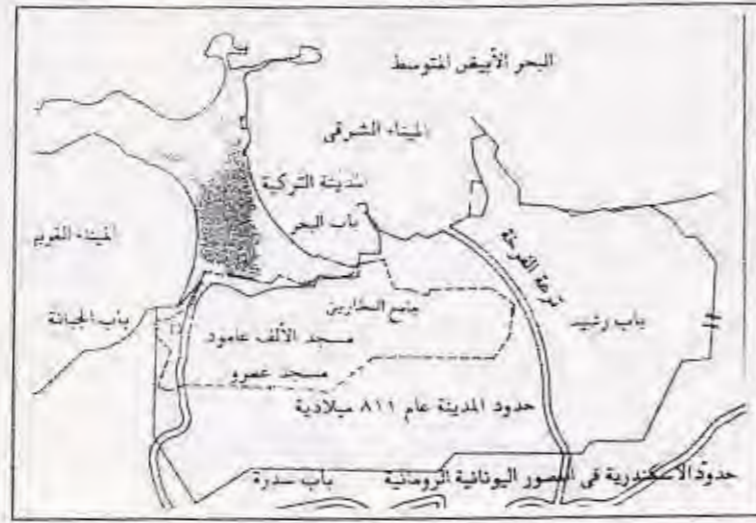 البحر الأبيض المتوسط
الميناء الشرقى
المدينة التركية
باب البحر
الميناء الغربى
باب الجبانة
ترعة الفرخة
باب رشيد
جامع العطارين
مسجد الألف عامود
مسجد عمرو
حدود المدينة عام ٨١١ ميلادية
حدود الاسكندرية فى العصور اليونانية الرومانية
باب سدرة